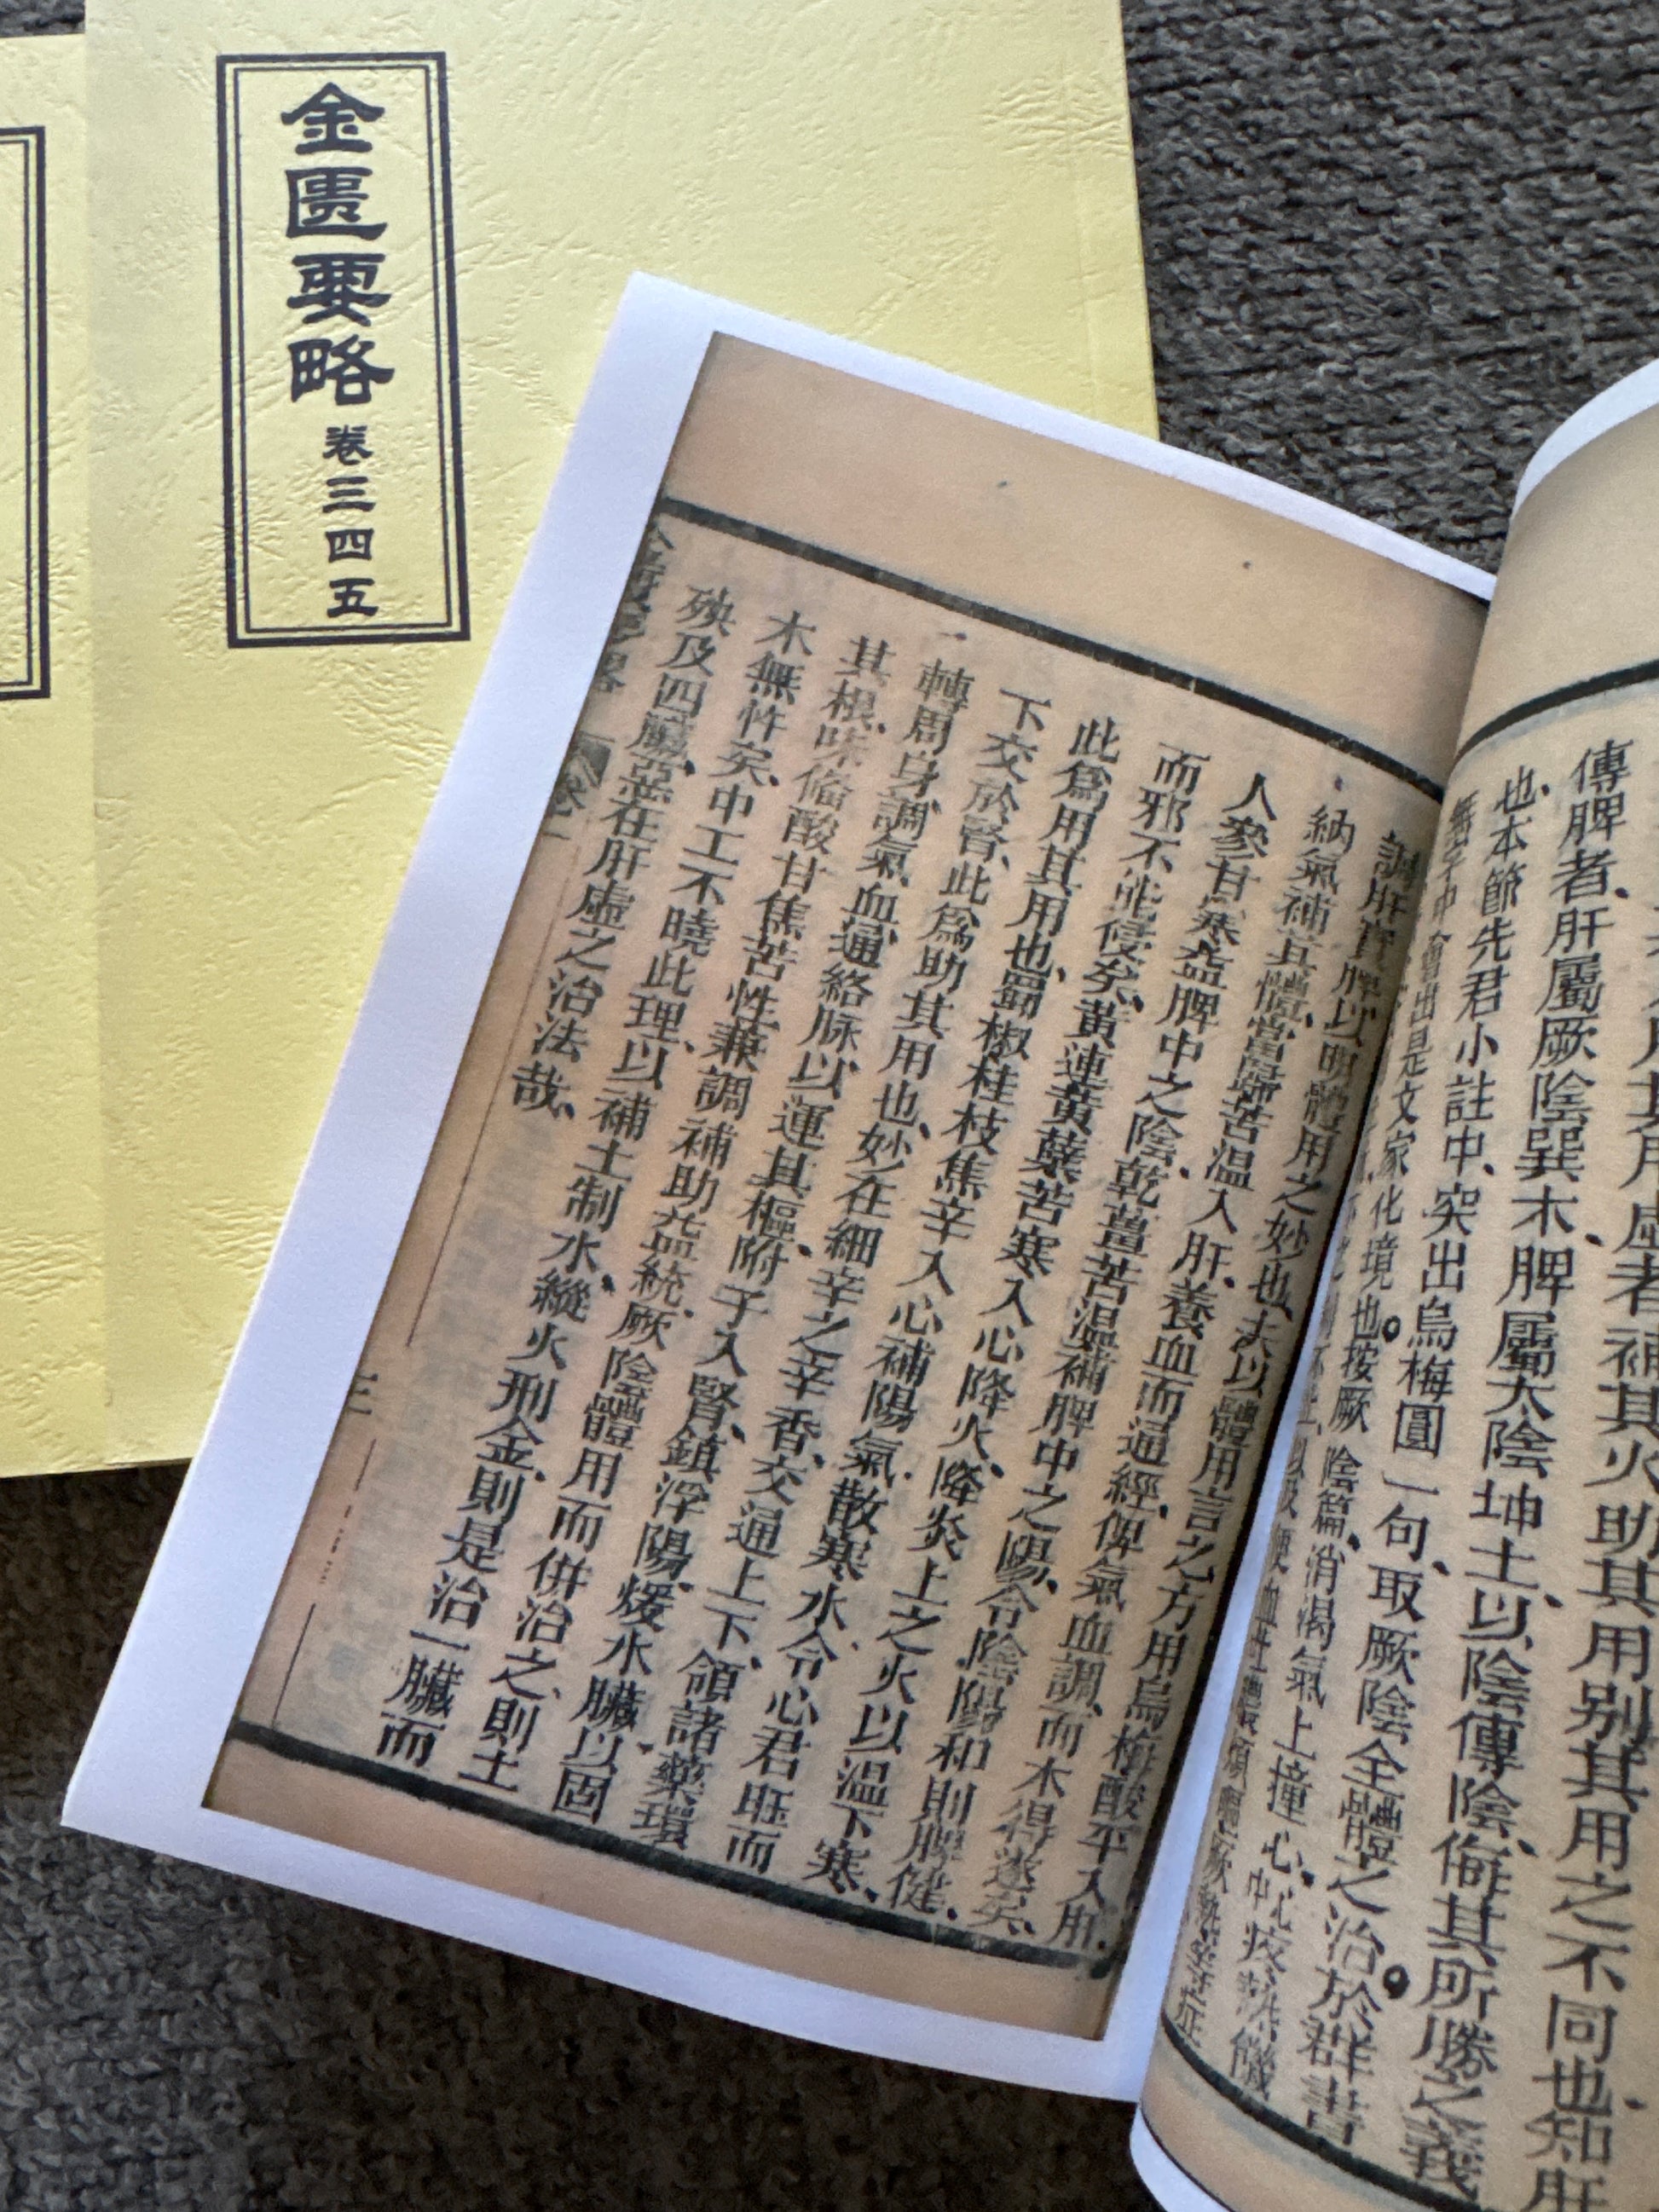 金匱要略 卷三四五
傳脾者、肝屬厥陰巽木、脾屬太陰坤土、以陰傳陰、侮其所勝之義
也、本節先君小註中、突出烏梅圓一句、取厥陰全體之治於群書
中會出是文家化境也。按厥陰篇、消渴氣上撞心、心中疼熱饑
調肝實脾以明體用之妙也、夫以體用言之方用烏梅酸平入肝、
納氣補其體、當歸苦溫入肝、養血而通經、俾氣血調、而木得遂矣、
人參甘寒益脾中之陰、乾薑苦溫補脾中之陽、令陰陽和則脾健、
而邪不能侵矣、黃連黃蘗苦寒入心降火、降炎上之火以溫下寒、
此為用其用也、蜀椒桂枝焦辛入心補陽氣、散寒水、令心君旺而
下交於腎、此為助其用也、妙在細辛之辛香、交通上下、領諸藥環
轉周身、調氣血、通絡脉、以運其樞、附子入腎、鎮浮陽、煖水臟、以固
其根、味偹酸甘焦苦、性兼調補助益、統厥陰體用而併治之、則土
木無忤矣、中工不曉此理、以補土制水、縱火刑金、則是治一臟而
殃及四臟、惡在肝虛之治法哉、
卷一